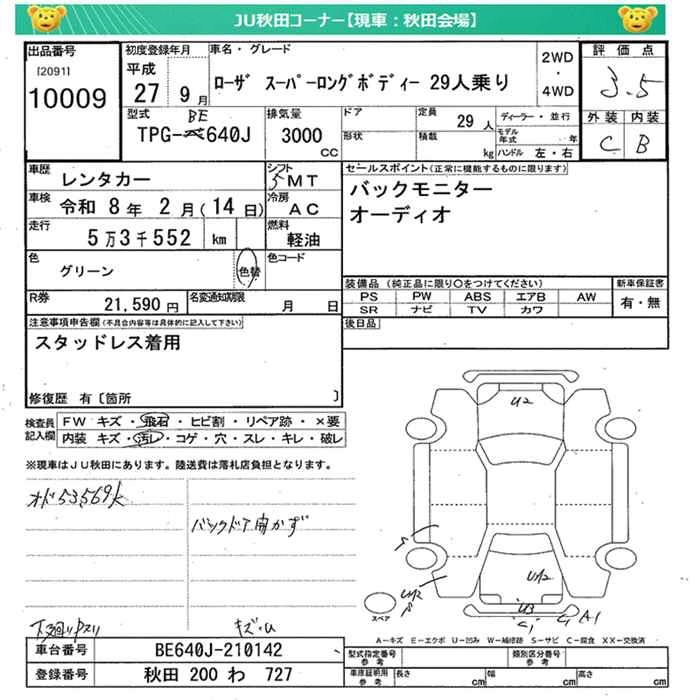 JU秋田コーナー【現車：秋田会場】
出品番号
[2091]
10009
初度登録年月
平成
27 9月
車名・グレード
ローザ スーパーロングボディー 29人乗り
2WD
・
4WD
評価点
3.5
外装 内装
C B
型式
BE
TPG-640J
排気量
3000
cc
ドア
形状
定員
29人
積載
kg
ディーラー・並行
モデル年式 年
ハンドル 左・右
車歴
レンタカー
シフト
5MT
車検
令和 8年 2月(14日)
冷房
AC
走行
5万3千552 km
燃料
軽油
色
グリーン
色替
色コード
R券
21,590円
名変通知期限
月 日
セールスポイント(正常に機能するものに限ります)
バックモニター
オーディオ
装備品 (純正品に限り○をつけてください)
PS PW ABS エアB AW
SR ナビ TV カワ
新車保証書
有・無
後日品
注意事項申告欄(不具合内容等は具体的に記入して下さい)
スタッドレス着用
修復歴 有〔箇所 〕
検査員記入欄
FW キズ・飛石・ヒビ割・リペア跡・×要
内装 キズ・汚レ・コゲ・穴・スレ・キレ・破レ
※現車はJU秋田にあります。陸送費は落札店負担となります。
オド53,569k
バックドア開かず
下廻りサスリ
キズ・U
U2
S
UW2
S
UW2
U3
C1
C1 A1
スペア
A－キズ E－エクボ U－凹み W－補修跡 S－サビ C－腐食 XX－交換済
車台番号
BE640J-210142
登録番号
秋田 200 わ 727
型式指定番号
参考
類別区分番号
参考
車庫証明用
参考
長さ cm
幅 cm
高さ cm